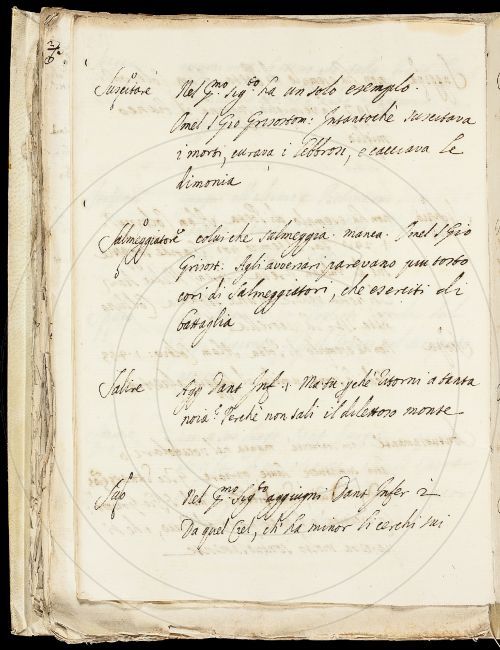 Suscitare Nel pmo. sigto. ha un solo esempio.
Omel S Gio Grisostom: Intantochè suscitava
i morti, curava i lebbrosi, e cacciava le
dimonia
Salmeggiatore colui che salmeggia manca. Omel S Gio
Grisost. Agli avversari parevano piu tosto
cori di Salmeggiatori, che eserciti di
battaglia
Salire Agg Dant Inf. 1. Ma tu perchè ritorni a tanta
noia? Perchè non sali il dilettoso monte
Nel pmo. sigto. aggiugni. Dant Infer 2
Da quel Ciel, ch' ha minor li cerchi sui